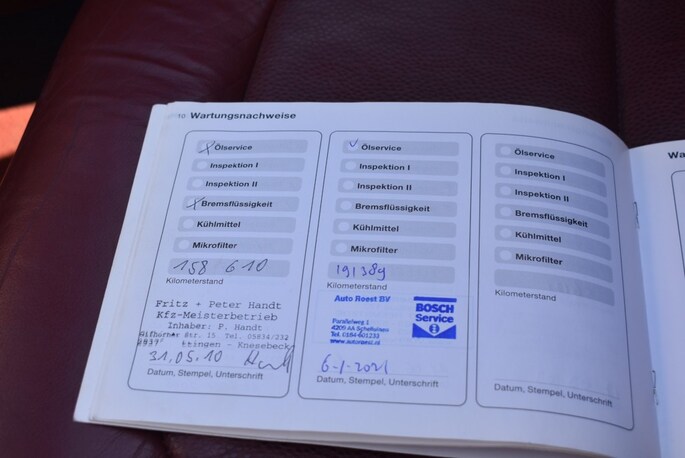 10 Wartungsnachweise
Ölservice
Inspektion I
Inspektion II
Bremsflüssigkeit
Kühlmittel
Mikrofilter
158 610
Kilometerstand
Fritz + Peter Handt
Kfz-Meisterbetrieb
Inhaber: P. Handt
Gifhorner Str. 15 Tel. 05834/232
ttingen - Knesebeck
31.05.10
Datum, Stempel, Unterschrift
Ölservice
Inspektion I
Inspektion II
Bremsflüssigkeit
Kühlmittel
Mikrofilter
191389
Kilometerstand
Auto Roest BV
BOSCH
Service
Parallelweg 1
Tel. 0184-601233
6-1-2021
Datum, Stempel, Unterschrift
Ölservice
Inspektion I
Inspektion II
Bremsflüssigkeit
Kühlmittel
Mikrofilter
Kilometerstand
Datum, Stempel, Unterschrift
Wa